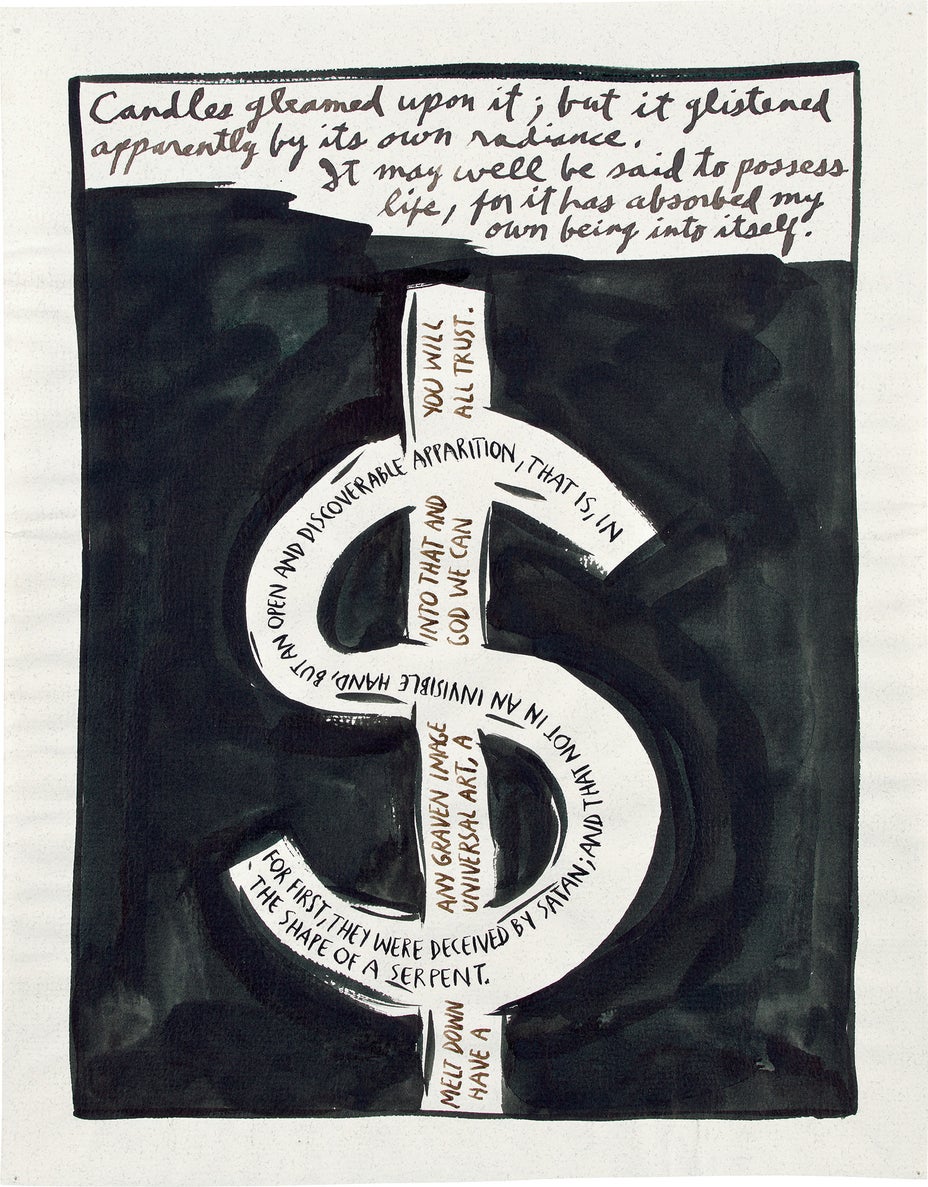 Candles gleamed upon it; but it glistened
apparently by its own radiance.
It may well be said to possess
life, for it has absorbed my
own being into itself.
FOR FIRST, THEY WERE DECEIVED BY SATAN; AND THAT NOT IN AN INVISIBLE HAND, BUT AN OPEN AND DISCOVERABLE APPARITION, THAT IS, IN
THE SHAPE OF A SERPENT.
MELT DOWN ANY GRAVEN IMAGE INTO THAT AND YOU WILL
HAVE A UNIVERSAL ART, A GOD WE CAN ALL TRUST.